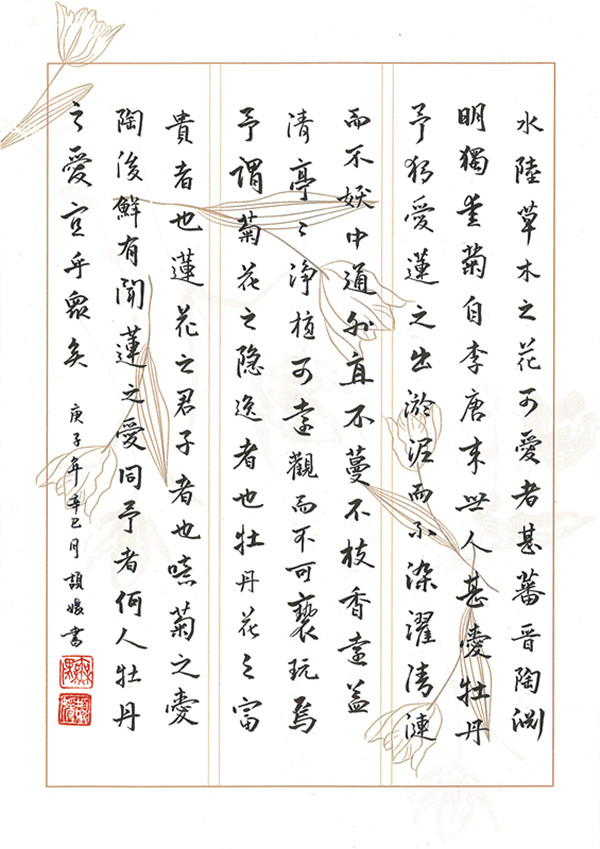 水陸草木之花可愛者甚蕃晉陶淵
明獨愛菊自李唐来世人甚愛牡丹
予独愛蓮之出淤泥而不染濯清漣
而不妖中通外直不蔓不枝香遠益
清亭〻淨植可遠觀而不可褻玩焉
予謂菊花之隐逸者也牡丹花之富
貴者也蓮花之君子者也噫菊之愛
陶後鮮有聞蓮之愛同予者何人牡丹
之愛宜乎眾矣
庚子年辛巳月書